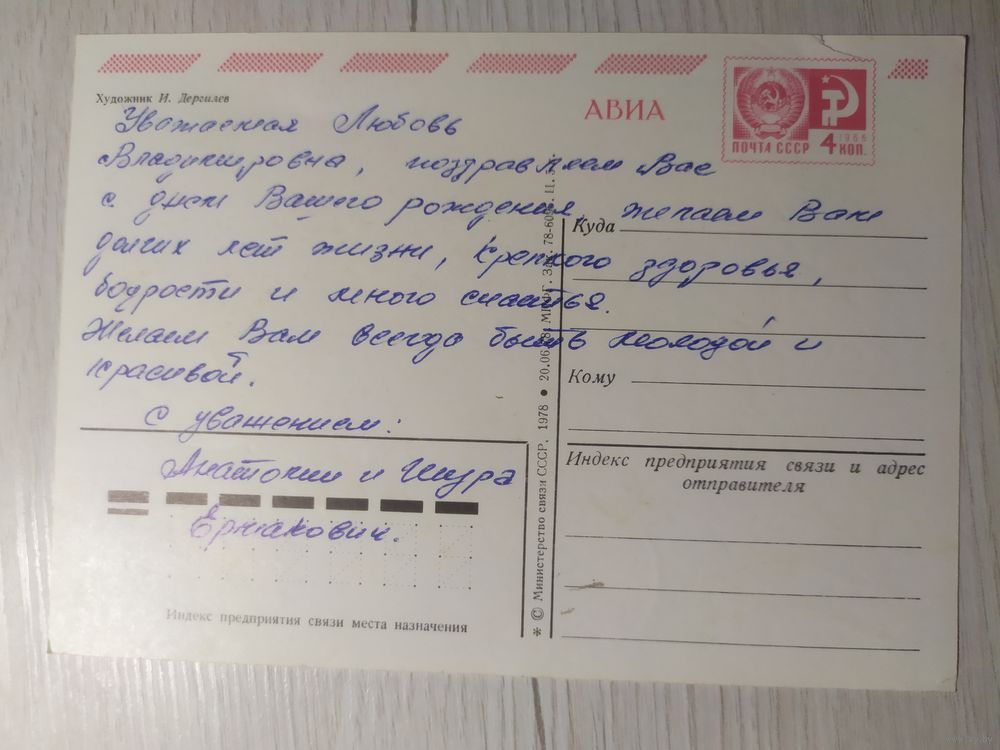 Художник И. Дергилев
АВИА
ПОЧТА СССР 4 КОП.
1966
Уважаемая Любовь
Владимировна, поздравляем Вас
с днем Вашего рождения, желаем Вам
долгих лет жизни, крепкого здоровья,
бодрости и много счастья.
Желаем Вам всегда быть молодой и
красивой.
С уважением:
Анатолий и Шура
Ермакович.
Индекс предприятия связи места назначения
* © Министерство связи СССР. 1978 ● 20.06.78
Куда
Кому
Индекс предприятия связи и адрес
отправителя